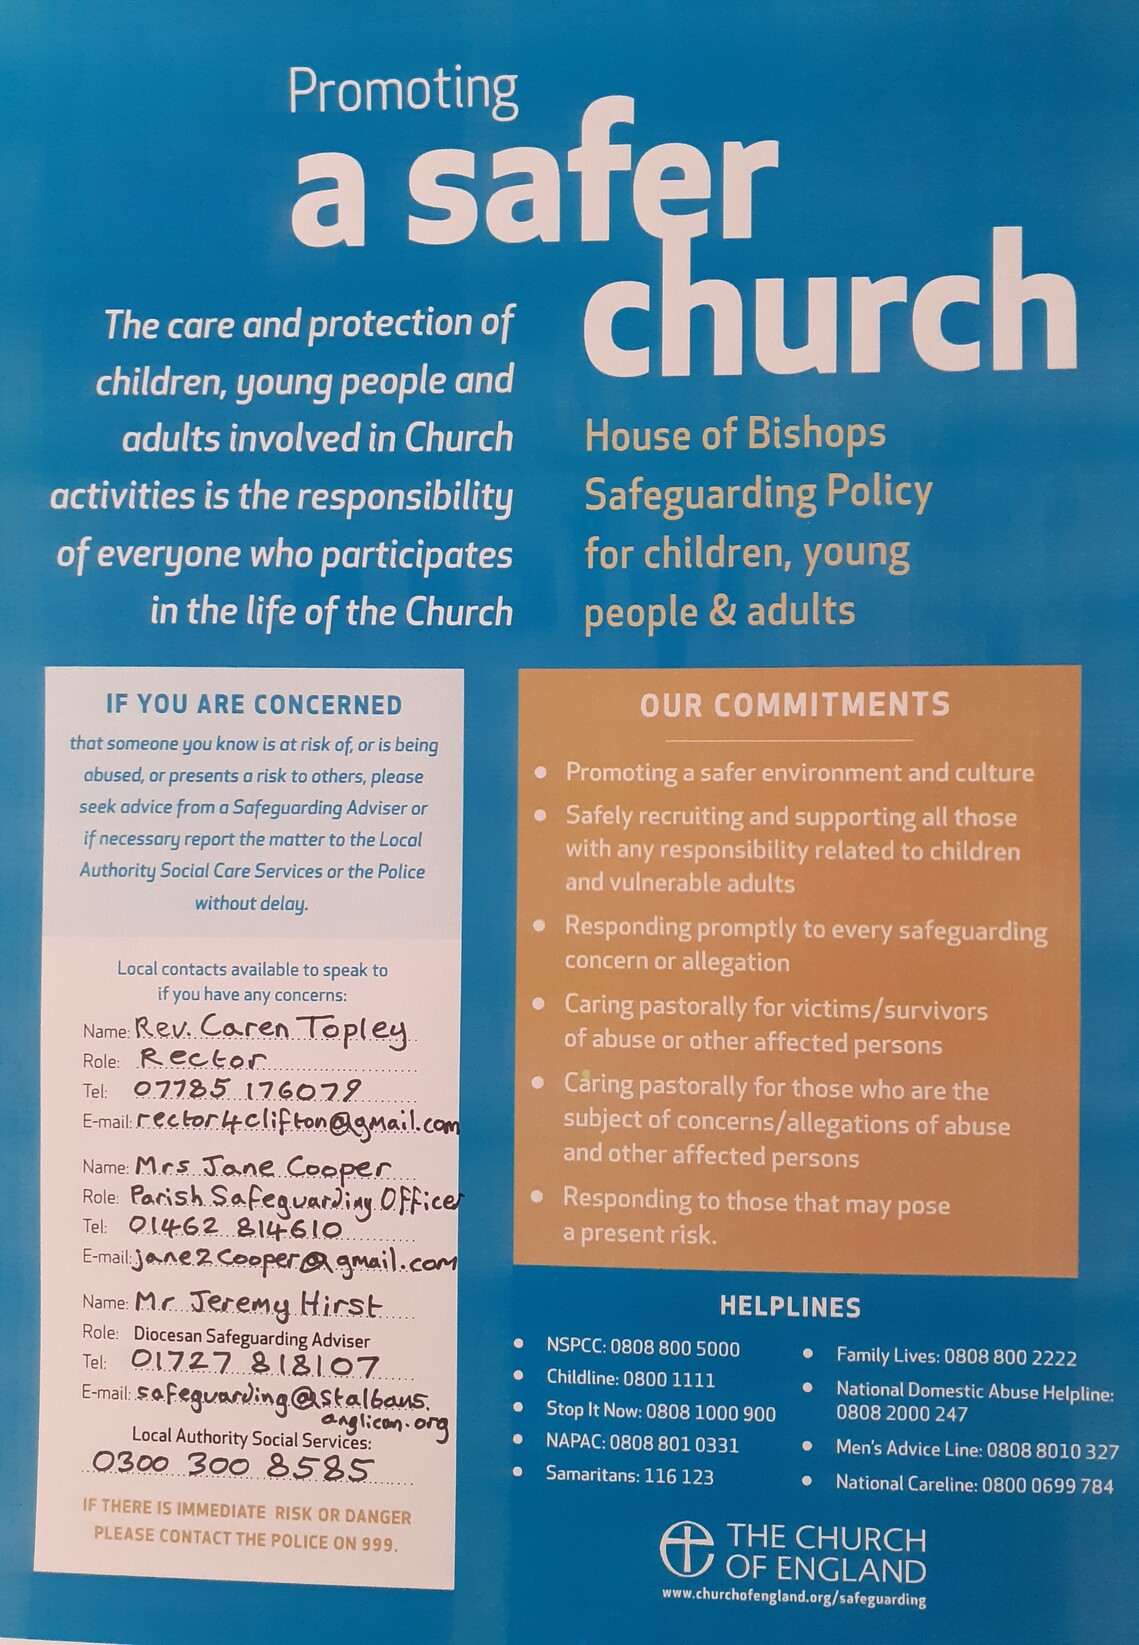 Promoting
a safer
church
The care and protection of
children, young people and
adults involved in Church
activities is the responsibility
of everyone who participates
in the life of the Church
House of Bishops
Safeguarding Policy
for children, young
people & adults
IF YOU ARE CONCERNED
that someone you know is at risk of, or is being
abused, or presents a risk to others, please
seek advice from a Safeguarding Adviser or
if necessary report the matter to the Local
Authority Social Care Services or the Police
without delay.
Local contacts available to speak to
if you have any concerns:
Name: Rev. Caren Topley
Role: Rector
Tel: 07785 176079
E-mail: rector4clifton@gmail.com
Name: Mrs Jane Cooper
Role: Parish Safeguarding Officer
Tel: 01462 814610
E-mail: jane2cooper@gmail.com
Name: Mr Jeremy Hirst
Role: Diocesan Safeguarding Adviser
Tel: 01727 818107
E-mail: safeguarding@stalbans.
anglican.org
Local Authority Social Services:
0300 300 8585
IF THERE IS IMMEDIATE RISK OR DANGER
PLEASE CONTACT THE POLICE ON 999.
OUR COMMITMENTS
• Promoting a safer environment and culture
• Safely recruiting and supporting all those
with any responsibility related to children
and vulnerable adults
• Responding promptly to every safeguarding
concern or allegation
• Caring pastorally for victims/survivors
of abuse or other affected persons
• Caring pastorally for those who are the
subject of concerns/allegations of abuse
and other affected persons
• Responding to those that may pose
a present risk.
HELPLINES
• NSPCC: 0808 800 5000
• Childline: 0800 1111
• Stop It Now: 0808 1000 900
• NAPAC: 0808 801 0331
• Samaritans: 116 123
• Family Lives: 0808 800 2222
• National Domestic Abuse Helpline:
0808 2000 247
• Men's Advice Line: 0808 8010 327
• National Careline: 0800 0699 784
THE CHURCH
OF ENGLAND
www.churchofengland.org/safeguarding